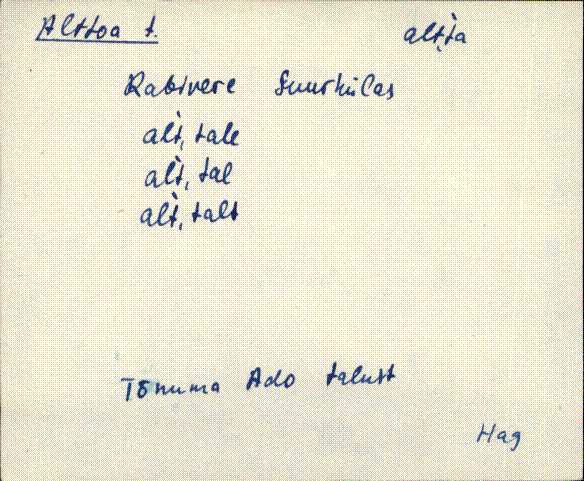 Alttoa t. al̀t,ta
Rabivere Suurkülas
al̀t,tale
al̀t,tal
al̀t,talt
Tõnuma Ado talust
Hag